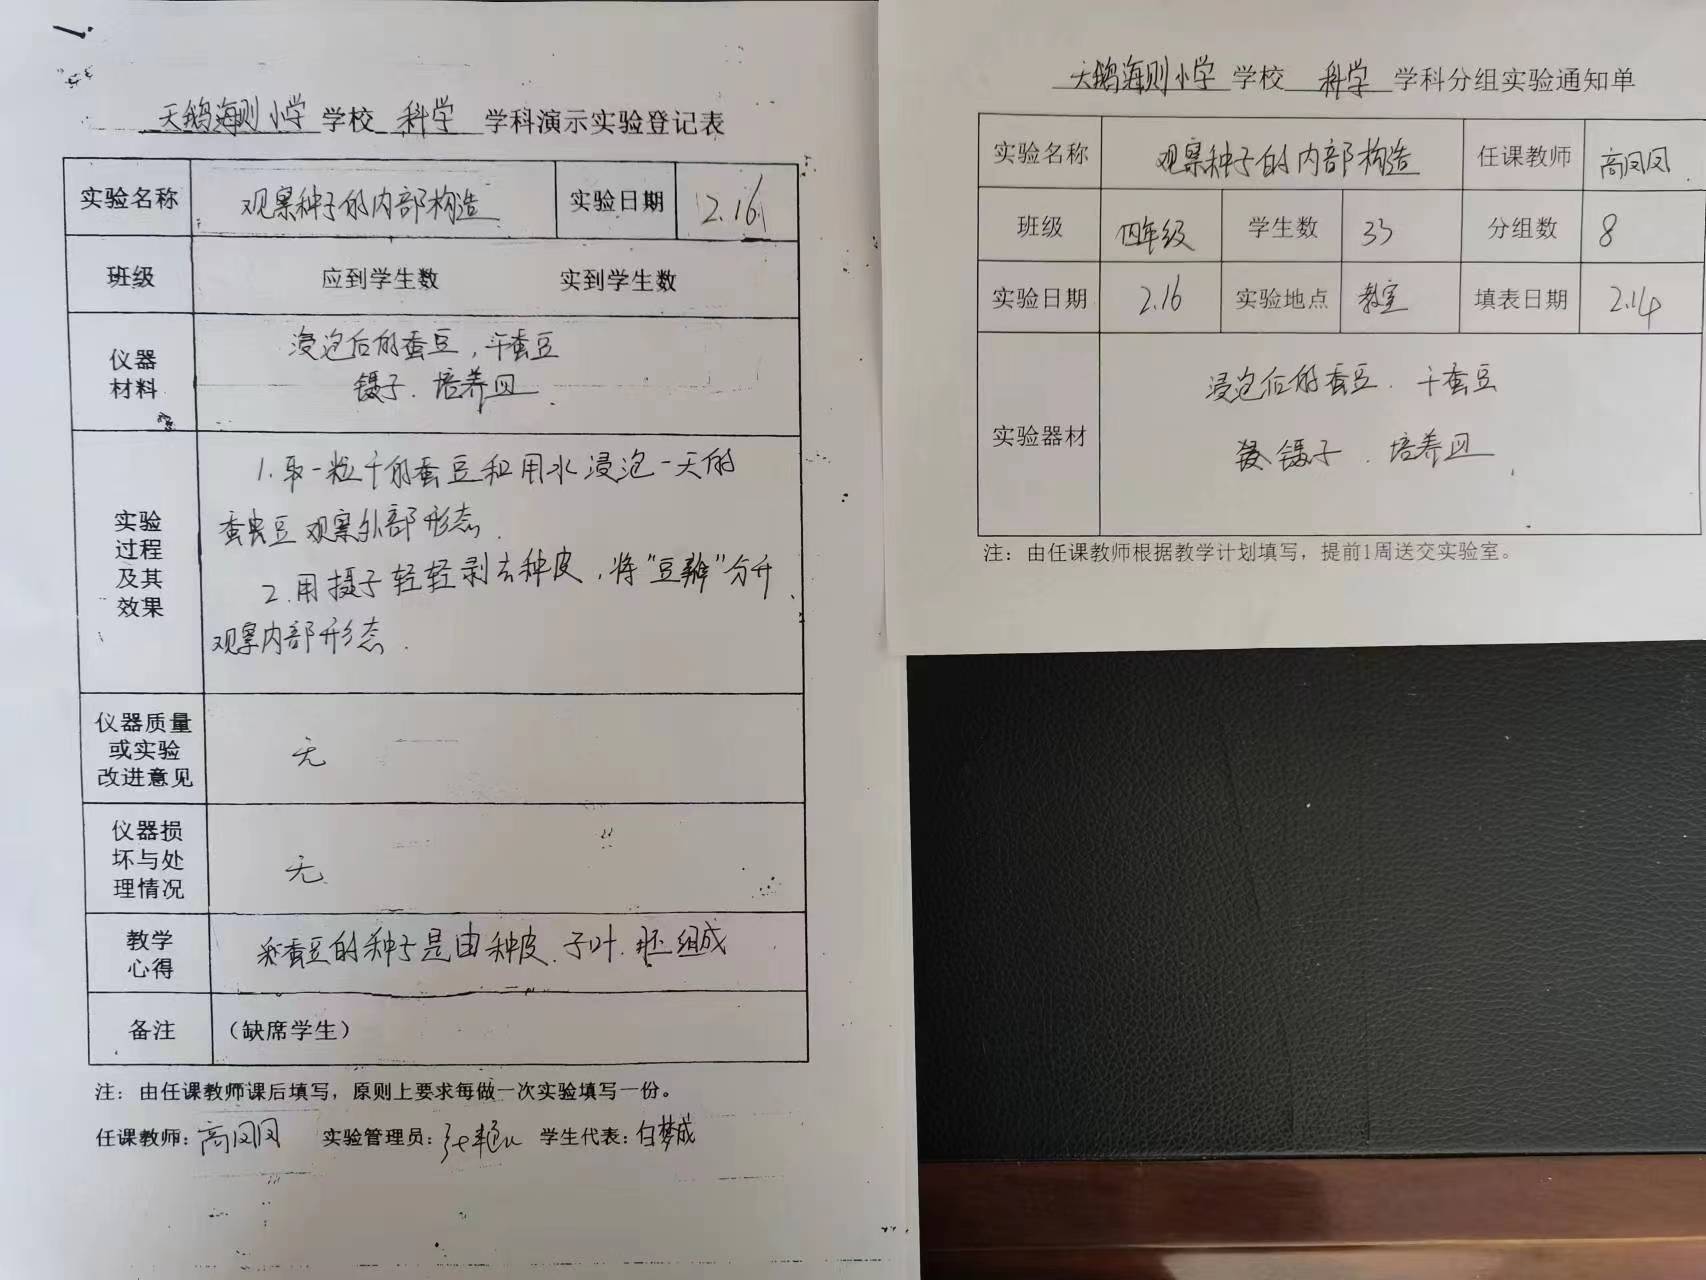 天鹅海则小学 学校 科学 学科演示实验登记表
实验名称 观察种子的内部构造 实验日期 2.16
班级 应到学生数 实到学生数
仪器材料 浸泡后的蚕豆，干蚕豆
镊子．培养皿
实验过程及其效果 1.取一粒干的蚕豆和用水浸泡一天的
蚕豆观察外部形态．
2.用摄子轻轻剥去种皮，将“豆瓣”分开．
观察内部形态．
仪器质量或实验改进意见 无
仪器损坏与处理情况 无
教学心得 蚕豆的种子是由种皮．子叶．胚组成
备注 （缺席学生）
注：由任课教师课后填写，原则上要求每做一次实验填写一份。
任课教师：高凤凤 实验管理员： 学生代表：白梦成
天鹅海则小学 学校 科学 学科分组实验通知单
实验名称 观察种子的内部构造 任课教师 高凤凤
班级 四年级 学生数 33 分组数 8
实验日期 2.16 实验地点 教室 填表日期 2.14
实验器材 浸泡后的蚕豆．干蚕豆
镊子．培养皿
注：由任课教师根据教学计划填写，提前1周送交实验室。